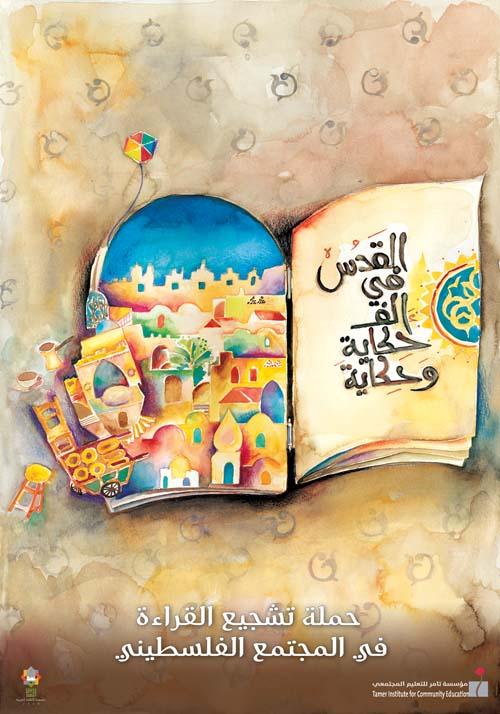 القدس
في
ألف
حكاية
وحكاية
حملة تشجيع القراءة
في المجتمع الفلسطيني
مؤسسة تامر للتعليم المجتمعي
Tamer Institute for Community Education